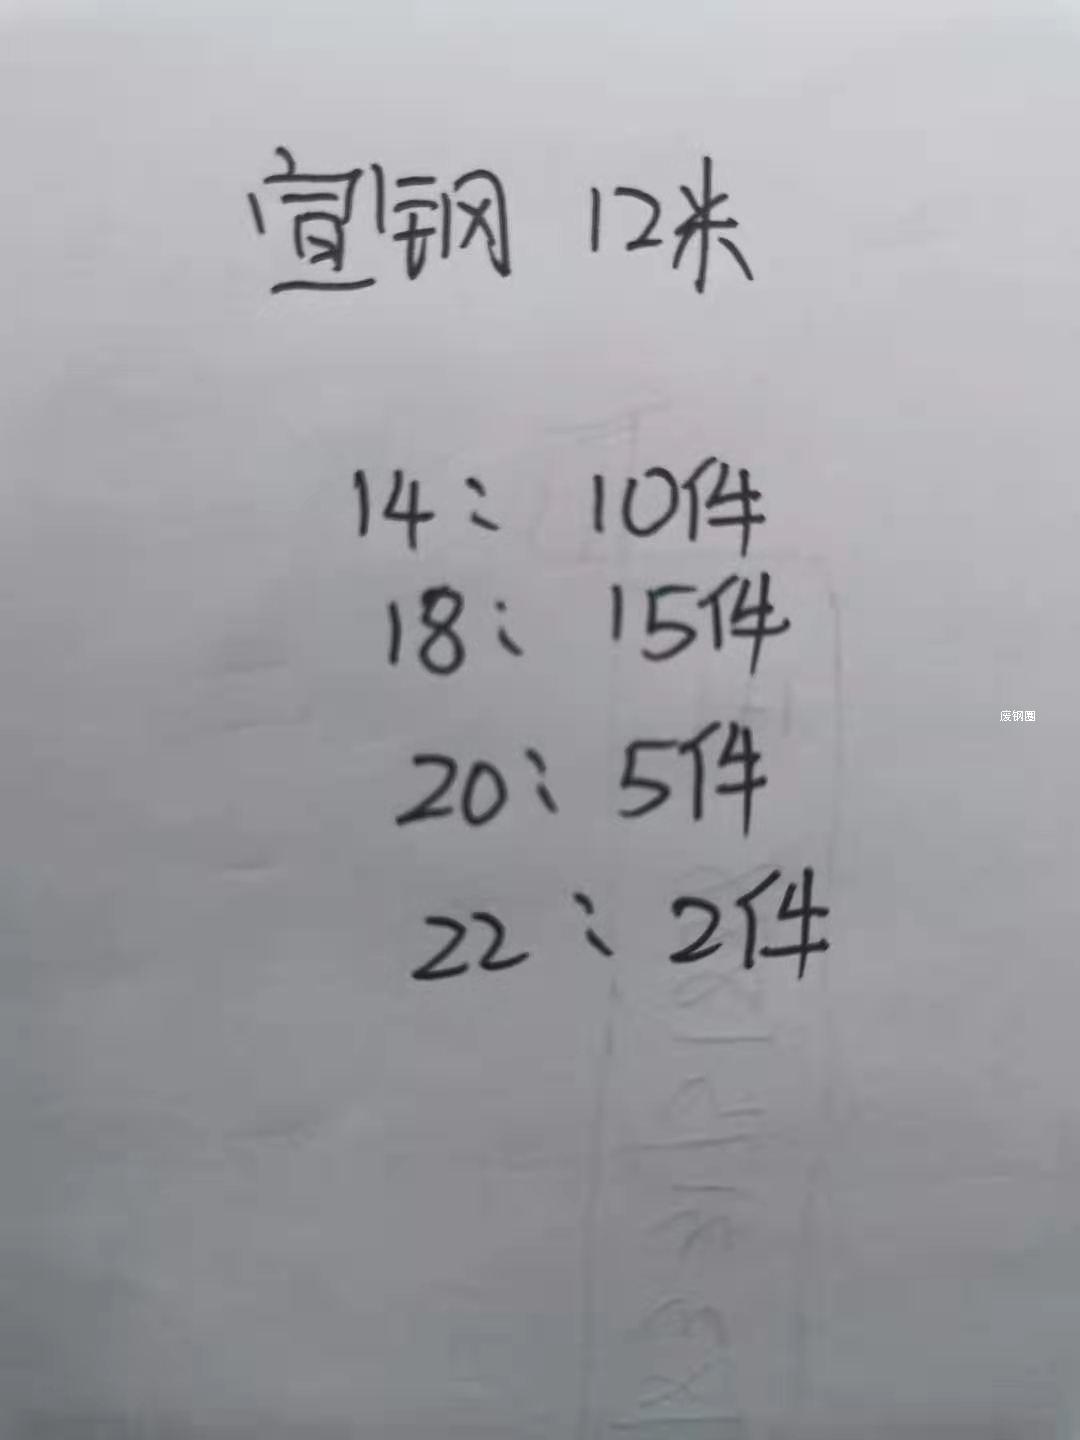 宣钢 12米
14: 10件
18: 15件
20: 5件
废钢圈
22: 2件